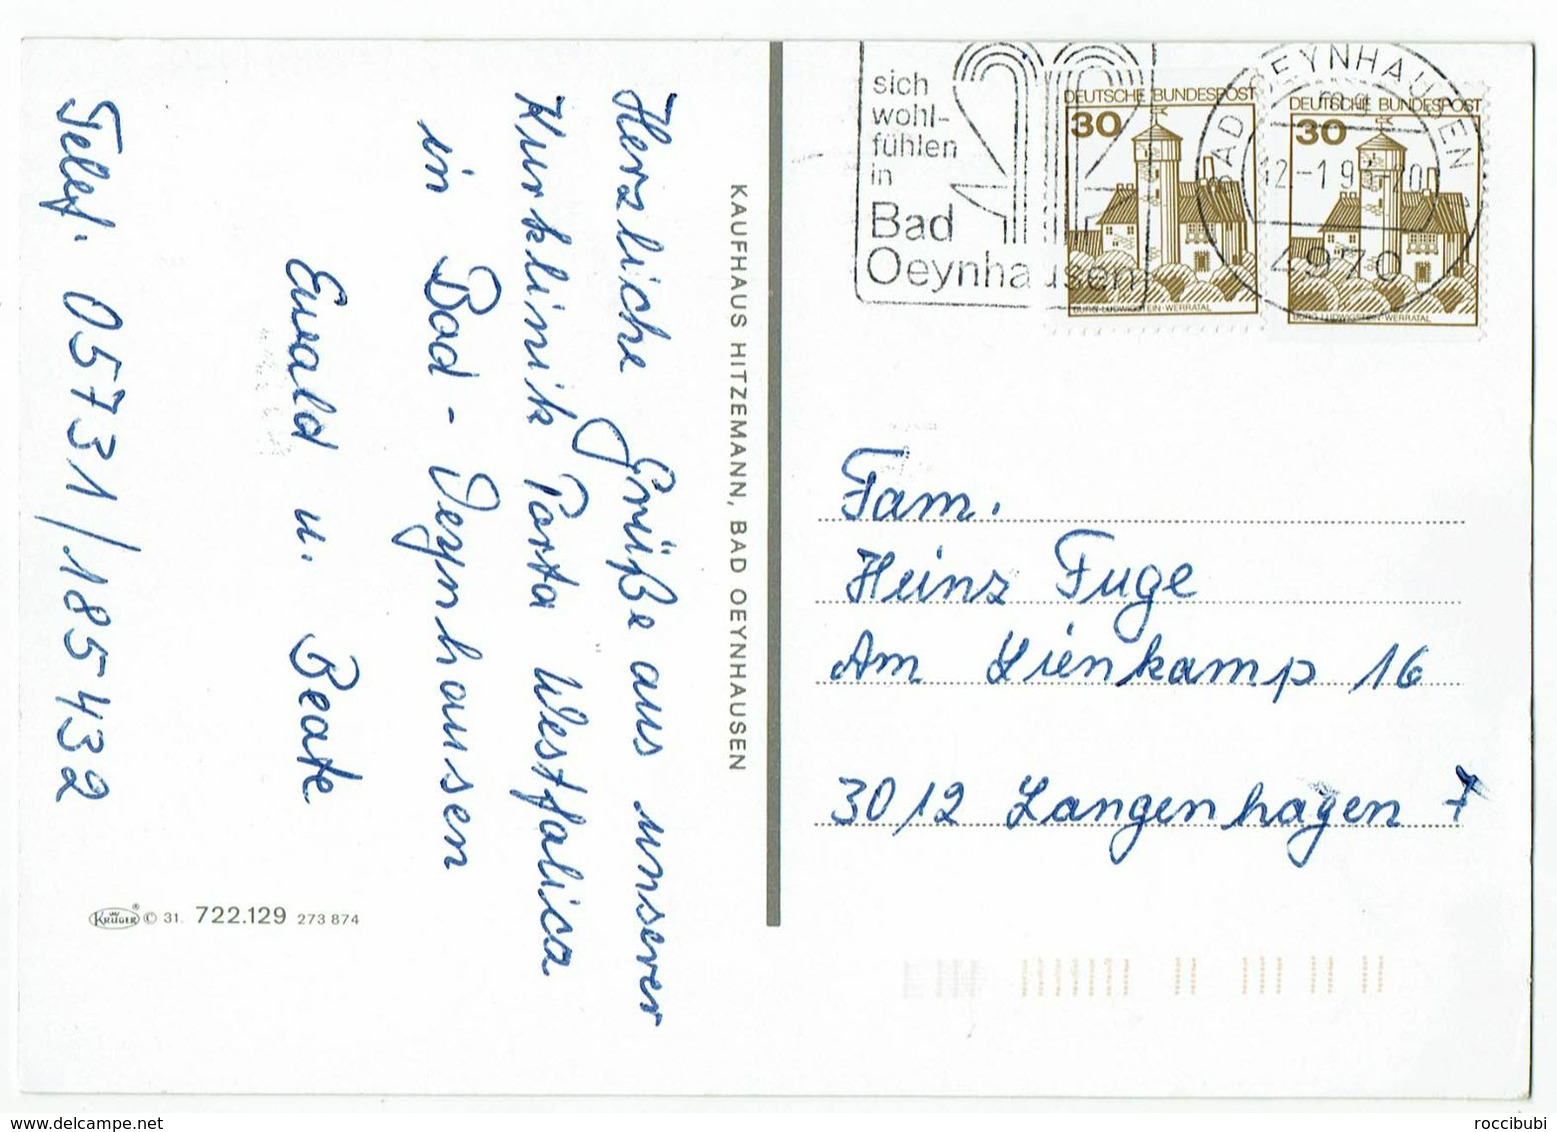 Herzliche Grüße aus unserer
Kurklinik Porta Westfalica
in Bad-Oeynhausen
Ewald u. Beate
Telef. 05731/185432
KRÜGER ® © 31. 722.129 273 874
KAUFHAUS HITZEMANN, BAD OEYNHAUSEN
sich
wohl-
fühlen
in
Bad
Oeynhausen
DEUTSCHE BUNDESPOST
30
BURG LUDWIGSTEIN·WERRATAL
DEUTSCHE BUNDESPOST
30
BURG LUDWIGSTEIN·WERRATAL
BAD OEYNHAUSEN 1
4970
Fam.
Heinz Fuge
Am Lienkamp 16
3012 Langenhagen 7
www.delcampe.net
roccibubi